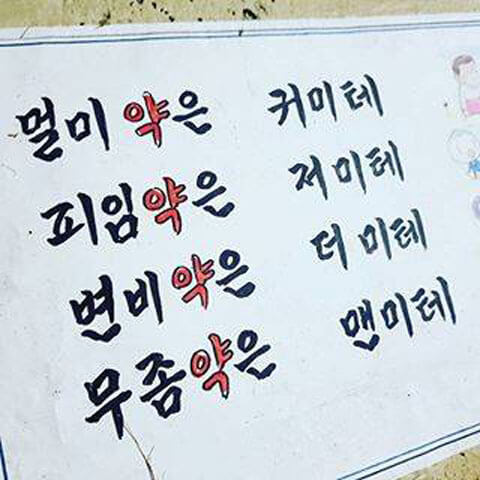 멀미약은 커미테
피임약은 저미테
변비약은 더미테
무좀약은 맨미테